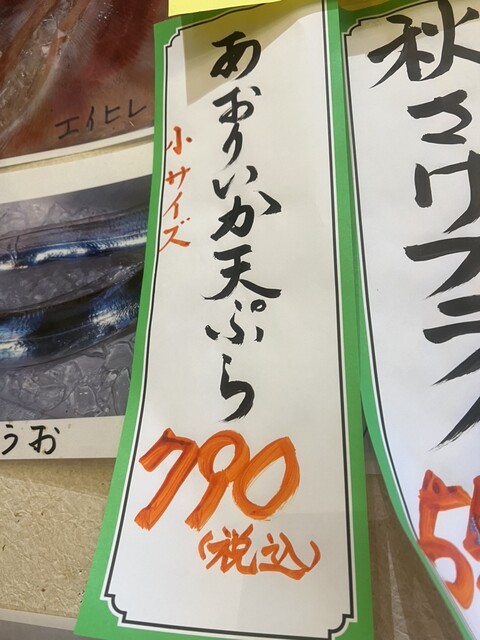 エイヒレ
うお
あおりいか天ぷら
小サイズ
790
(税込)
秋さけフライ